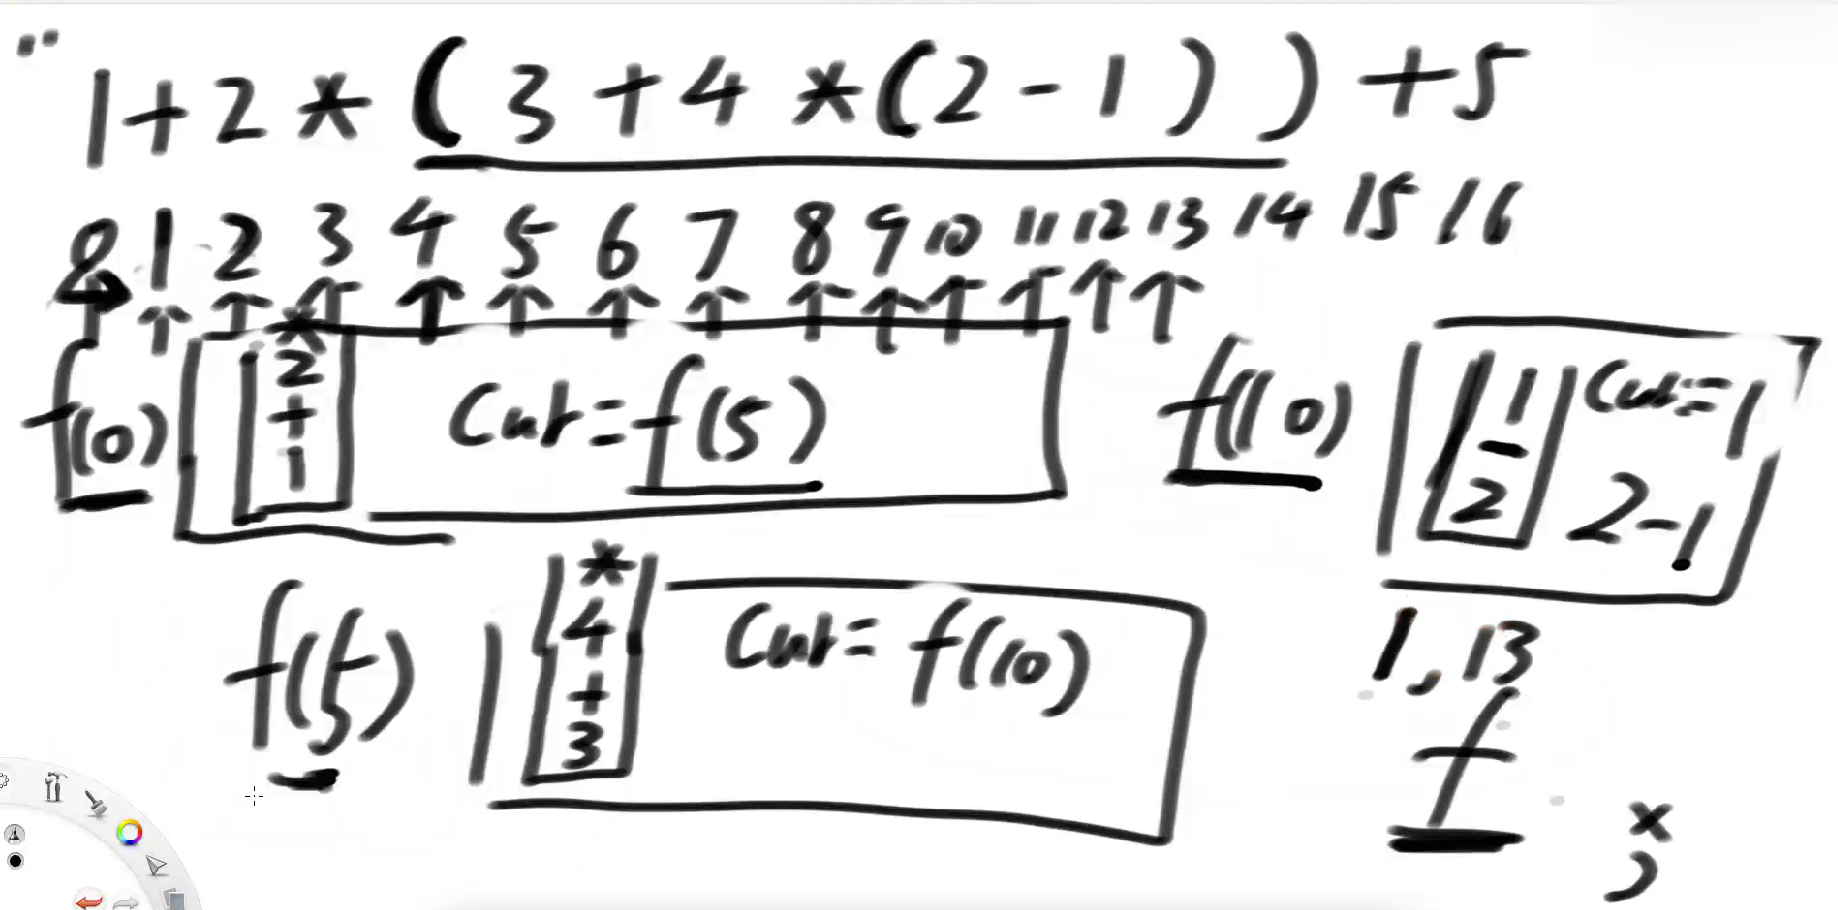 "
1+2*(3+4*(2-1))+5
0 1 2 3 4 5 6 7 8 9 10 11 12 13 14 15 16
f(0)
*
2
+
1
Cur=f(5)
f(10)
1
-
2
Cur=1
2-1
f(5)
*
4
+
3
Cur=f(10)
1,13
f
x
)